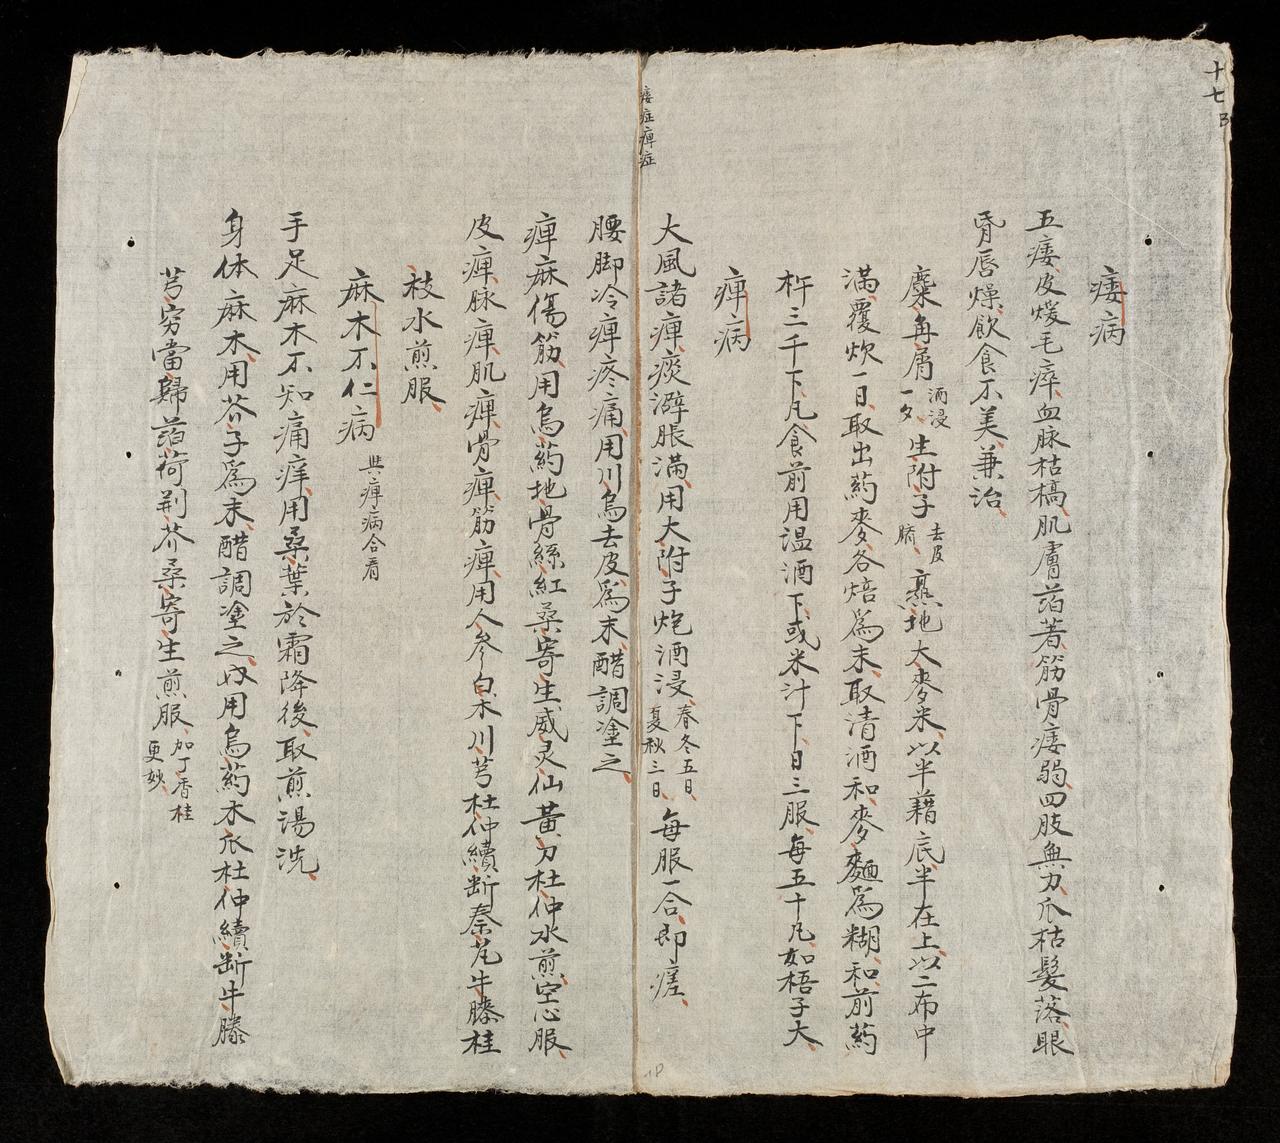 十七B
痿病
五痿皮煖毛瘁血脉枯槁肌膚萡著筋骨痿弱四肢無力爪枯髮落眼
昏唇燥飲食不美兼治
麋角屑酒浸一夕生附子去皮臍熟地大麥米以半藉底半在上以二布中
滿覆炊一日取出药麥各焙爲末取清酒和麥麵爲糊和前药
杵三千下凡食前用温酒下或米汁下日三服每五十凡如梧子大
痺病
痿症痺症
大風諸痺痰澼脹滿用大附子炮酒浸春冬五日夏秋三日每服一合即瘥
腰脚冷痺疼痛用川烏去皮爲末醋調塗之
痺麻傷筋用烏药地骨絲紅桑寄生威灵仙黃力杜仲水煎空心服
皮痺脉痺肌痺骨痺筋痺用人參白朮川芎杜仲續断秦艽牛膝桂
枝水煎服
麻木不仁病與痺病合看
手足麻木不知痛痒用桑葉於霜降後取煎湯洗
身体麻木用芥子爲末醋調塗之内用烏药木瓜杜仲續断牛膝
芎穷當歸萡荷荆芥桑寄生煎服加丁香桂更妙